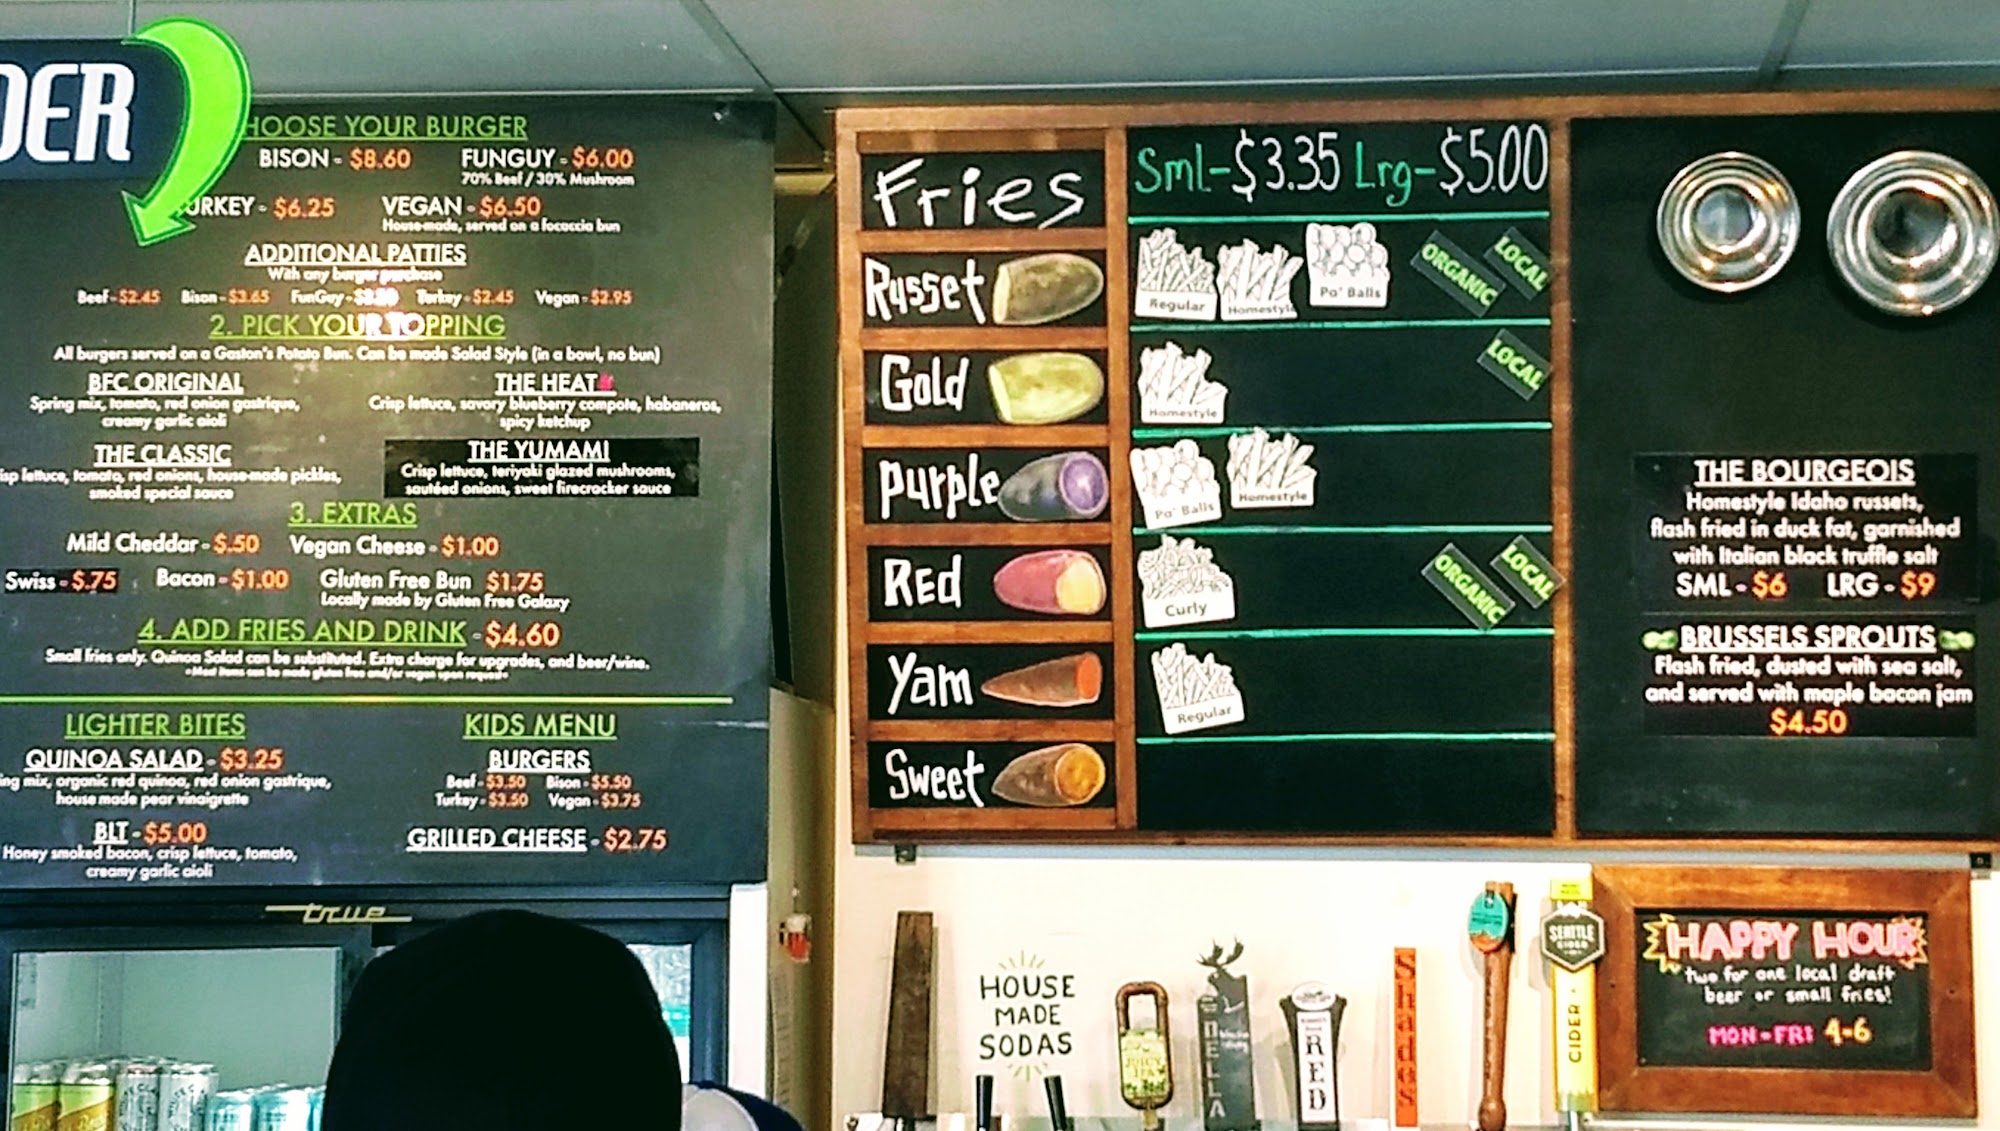 DER
HOOSE YOUR BURGER
BISON - $8.60 FUNGUY - $6.00
70% Beef / 30% Mushroom
URKEY - $6.25 VEGAN - $6.50
House-made, served on a focaccia bun
ADDITIONAL PATTIES
With any burger purchase
Beef - $2.45 Bison - $3.65 FunGuy - Turkey - $2.45 Vegan - $2.95
2. PICK YOUR TOPPING
All burgers served on a Gaston's Potato Bun. Can be made Salad Style (in a bowl, no bun)
BFC ORIGINAL
Spring mix, tomato, red onion gastrique,
creamy garlic aioli
THE HEAT
Crisp lettuce, savory blueberry compote, habaneros,
spicy ketchup
THE CLASSIC
isp lettuce, tomato, red onions, house-made pickles,
smoked special sauce
THE YUMAMI
Crisp lettuce, teriyaki glazed mushrooms,
sautéed onions, sweet firecracker sauce
3. EXTRAS
Mild Cheddar - $.50 Vegan Cheese - $1.00
Swiss - $.75 Bacon - $1.00 Gluten Free Bun $1.75
Locally made by Gluten Free Galaxy
4. ADD FRIES AND DRINK - $4.60
Small fries only. Quinoa Salad can be substituted. Extra charge for upgrades, and beer/wine.
*Most items can be made gluten free and/or vegan upon request*
LIGHTER BITES
QUINOA SALAD - $3.25
ing mix, organic red quinoa, red onion gastrique,
house made pear vinaigrette
BLT - $5.00
Honey smoked bacon, crisp lettuce, tomato,
creamy garlic aioli
KIDS MENU
BURGERS
Beef - $3.50 Bison - $5.50
Turkey - $3.50 Vegan - $3.75
GRILLED CHEESE - $2.75
true
Fries
Sml-$3.35 Lrg-$5.00
Russet
Regular Homestyle Po' Balls
ORGANIC LOCAL
Gold
Homestyle
LOCAL
Purple
Po' Balls Homestyle
Red
Curly
ORGANIC LOCAL
Yam
Regular
Sweet
THE BOURGEOIS
Homestyle Idaho russets,
flash fried in duck fat, garnished
with Italian black truffle salt
SML - $6 LRG - $9
BRUSSELS SPROUTS
Flash fried, dusted with sea salt,
and served with maple bacon jam
$4.50
HOUSE
MADE
SODAS
JUICY
IPA
RED
Shades
SEATTLE
CIDER
CIDER
HAPPY HOUR
two for one local draft
beer or small fries!
MON-FRI 4-6